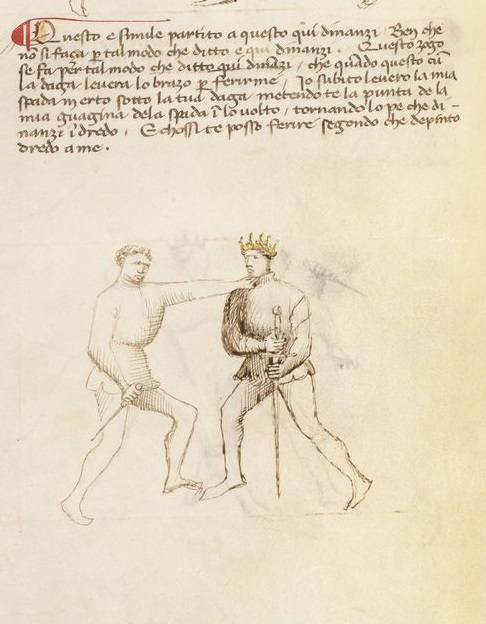 Questo e simile partito a questo qui dinanzi. Ben che
nō si faça ꝑ tal modo che ditto e qui dinanzi. Questo zogo
se fa ꝑ tal modo che ditto qui dināzi, che quādo questo cū
la daga levera lo brazo ꝑ ferirme, Io subito levero la mia
spada in erto sotto la tua daga metendote la punta de la
mia guagina dela spada ī lo volto, tornando lo pe che di-
nanzi ī dredo. E chossi te posso ferire segondo che depinto
dredo a me.